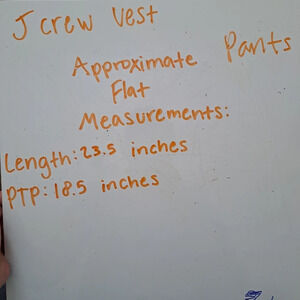 J crew Vest
Pants
Approximate
Flat
Measurements:
Length: 23.5 inches
PTP: 18.5 inches